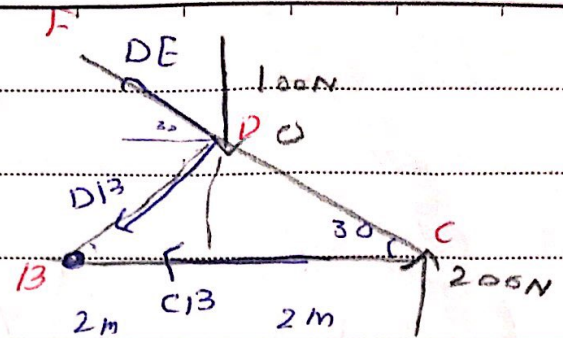 E
DE
100N
30
D
DB
30
C
B
CB
200N
2m
2m